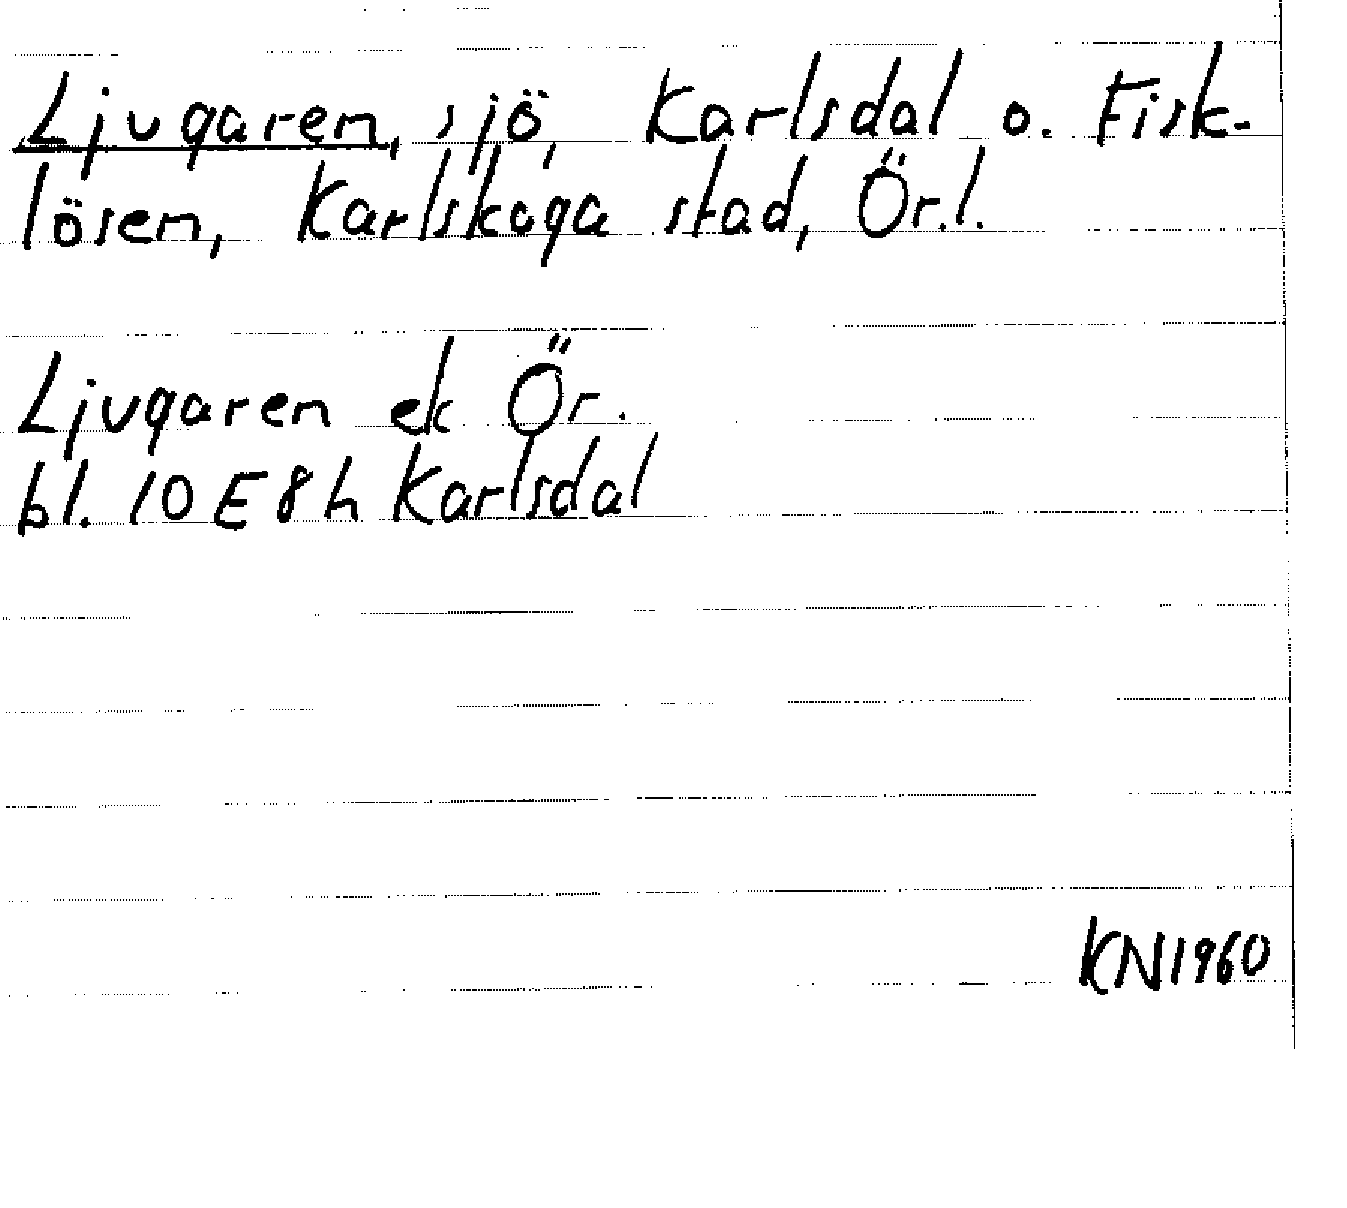 Ljugaren, sjö, Karlsdal o. Fisk-
lösen, Karlskoga stad, Ör.l.
Ljugaren ek Ör.
bl. 10 E 8 h Karlsdal
KN1960